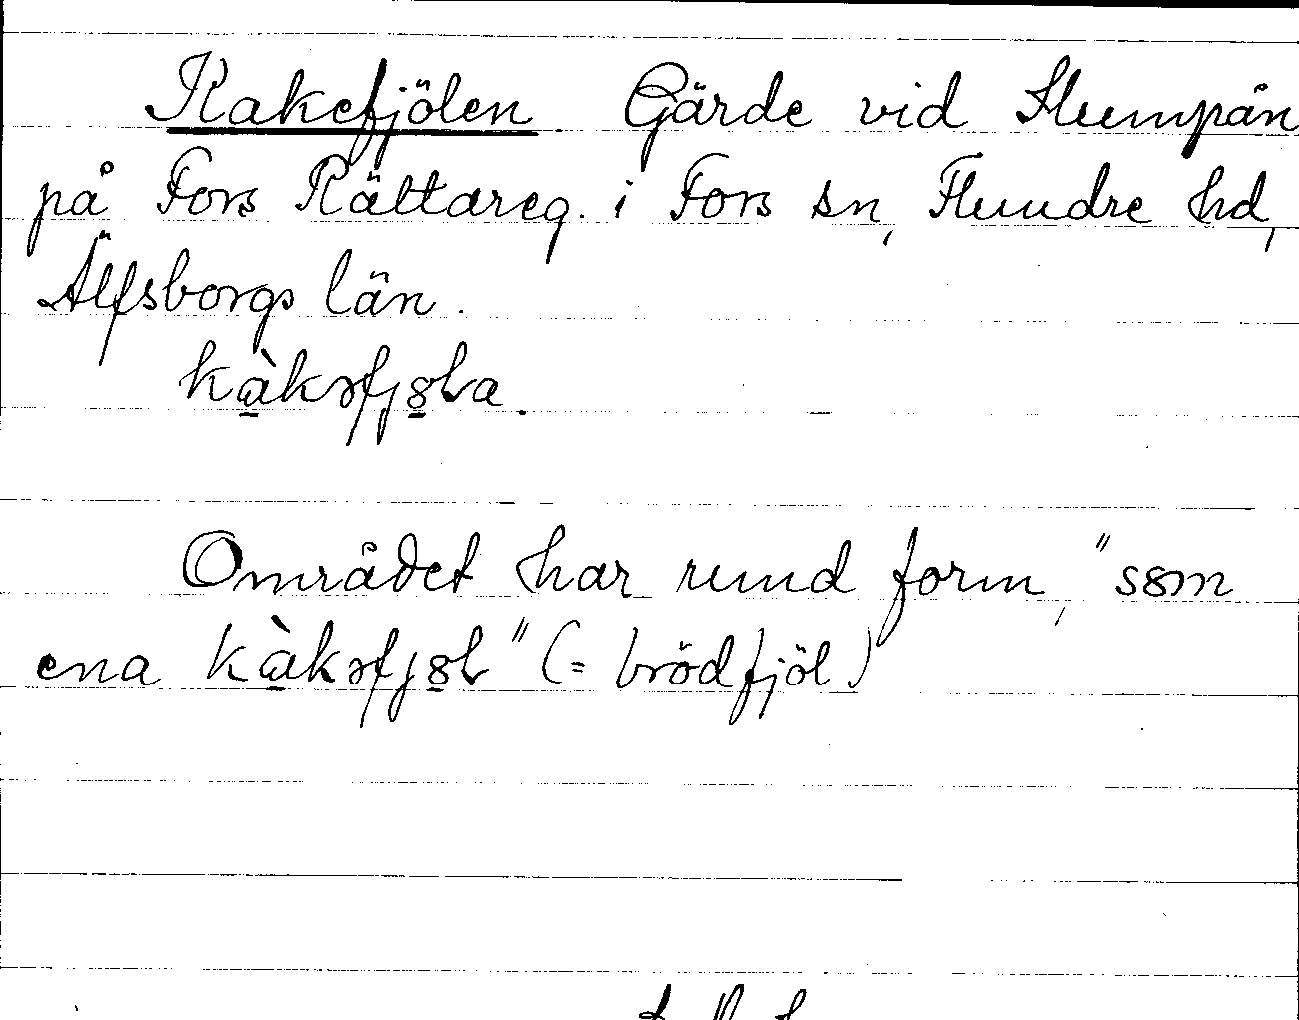 Kakefjölen. Gärde vid Slumpån
på Fors Rättareg. i Fors sn, Flundre hd,
Älfsborgs län.
kàkəfjɵLa.
Området har rund form, "sɵm
ena kàkəfjɵL" (= brödfjöl)